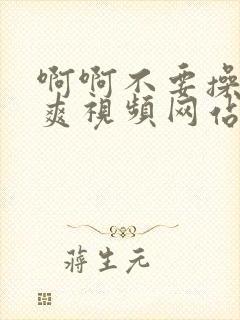 啊啊不要操
爽視頻网估
蒋生元